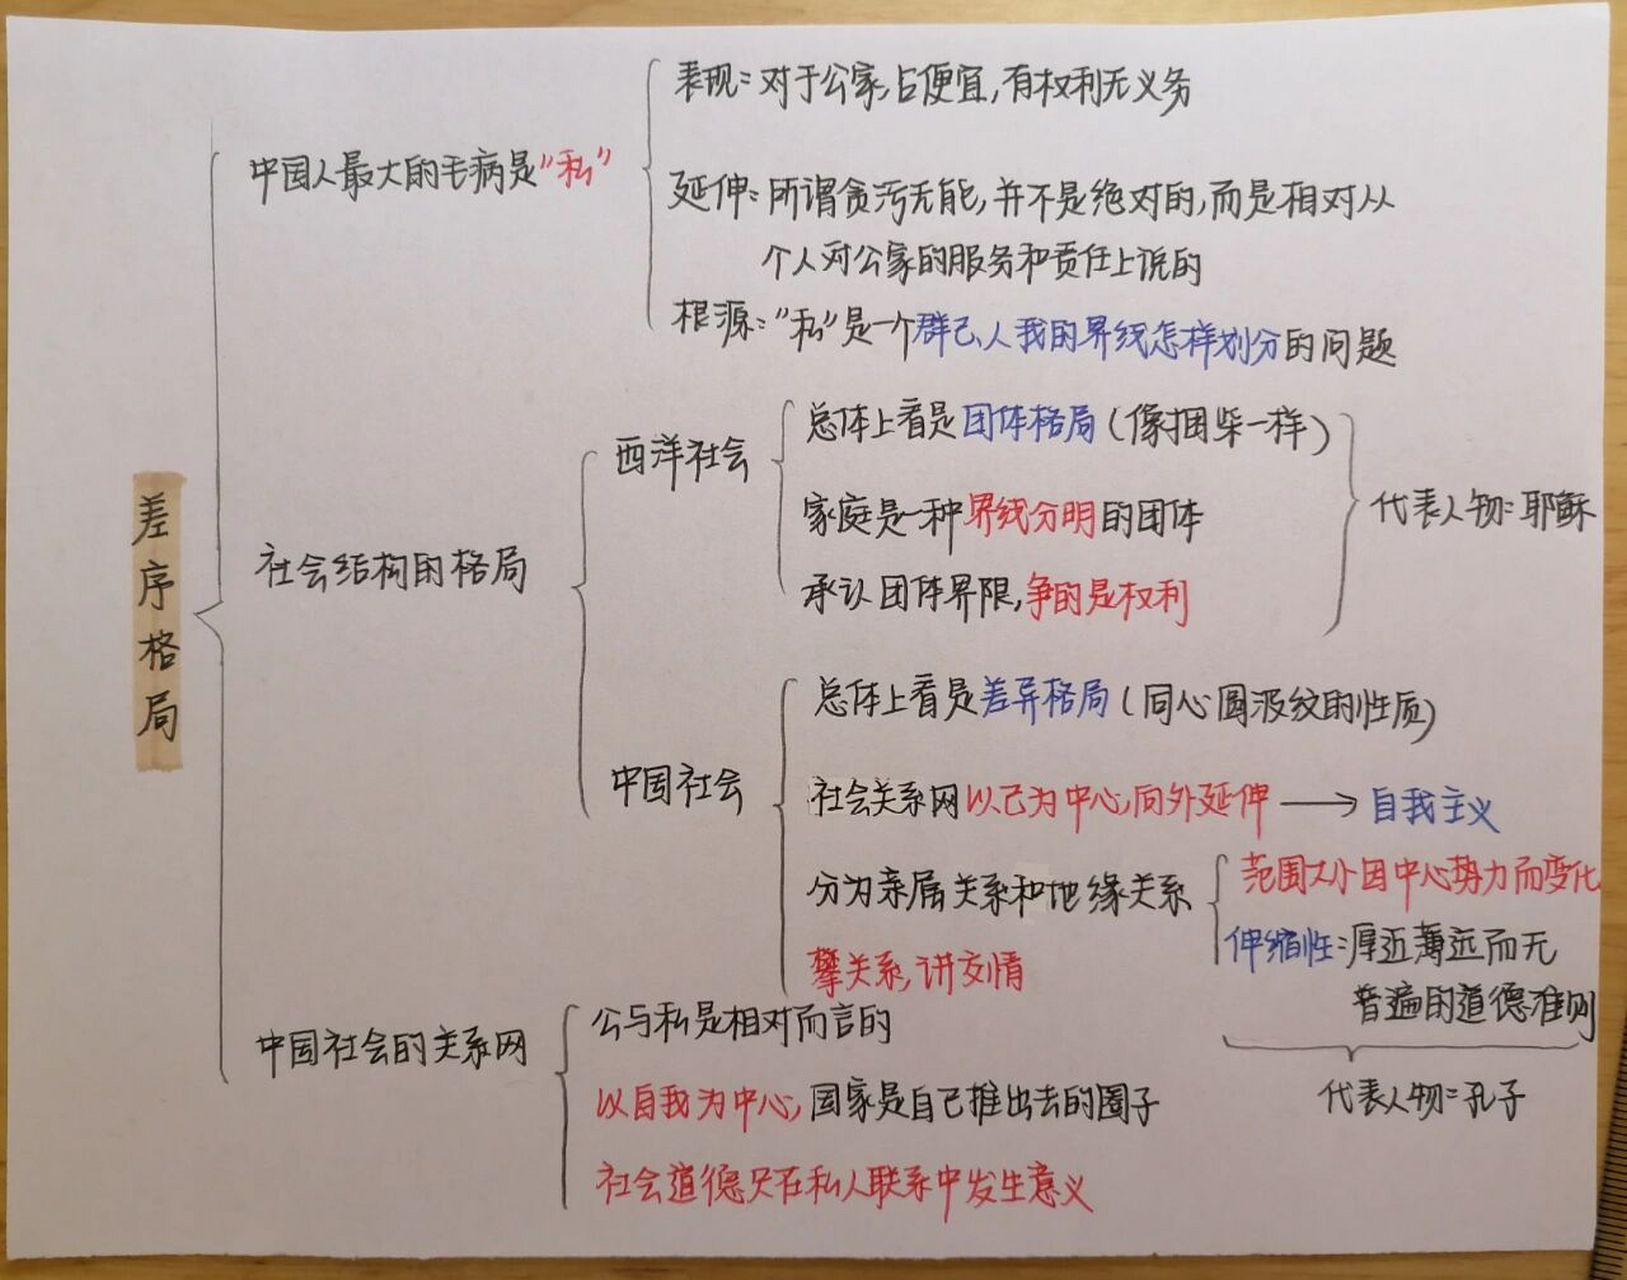 差序格局
中国人最大的毛病是“私”
表现：对于公家，占便宜，有权利无义务
延伸：所谓贪污无能，并不是绝对的，而是相对从
个人对公家的服务和责任上说的
根源：“私”是一个群己、人我的界线怎样划分的问题
社会结构的格局
西洋社会
总体上看是团体格局（像捆柴一样）
家庭是一种界线分明的团体
承认团体界限，争的是权利
代表人物：耶稣
中国社会
总体上看是差异格局（同心圆波纹的性质）
社会关系网以己为中心，向外延伸 → 自我主义
分为亲属关系和地缘关系
范围大小因中心势力而变化
伸缩性：厚近薄远而无
普遍的道德准则
攀关系，讲交情
代表人物：孔子
中国社会的关系网
公与私是相对而言的
以自我为中心，国家是自己推出去的圈子
社会道德只在私人联系中发生意义